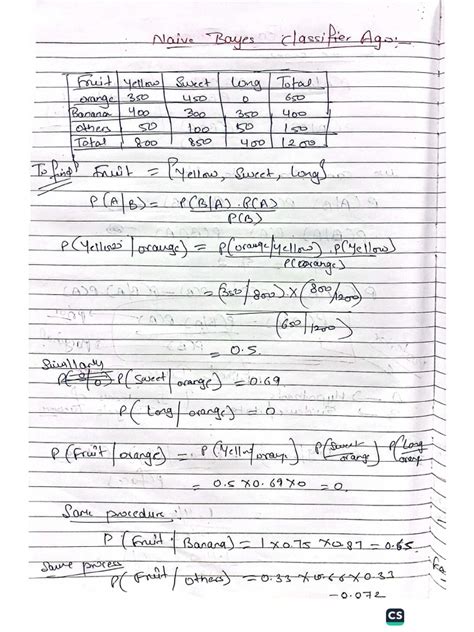 Naive Bayes Classifier Ago:
Fruit Yellow Sweet Long Total
orange 350 450 0 650
Banana 400 300 350 400
others 50 100 50 150
Total 800 850 400 1200
To find Fruit = {Yellow, Sweet, Long}
P(A|B) = P(B|A).P(A)
P(B)
P(Yellow/orange) = P(orange/yellow).P(Yellow)
P(orange)
= (350/800) X (800/1200)
(650/1200)
= 0.5.
P(Sweet/orange) = 0.69
P(Long/orange) = 0
P(Fruit/orange) = P(Yellow/orange) P(Sweet/orange) P(Long/orange)
= 0.5 X 0.69 X 0 = 0.
Same procedure:
P(Fruit/Banana) = 1 X 0.75 X 0.87 = 0.65.
Same process
P(Fruit/others) = 0.33 X 0.66 X 0.33
= 0.072
CS